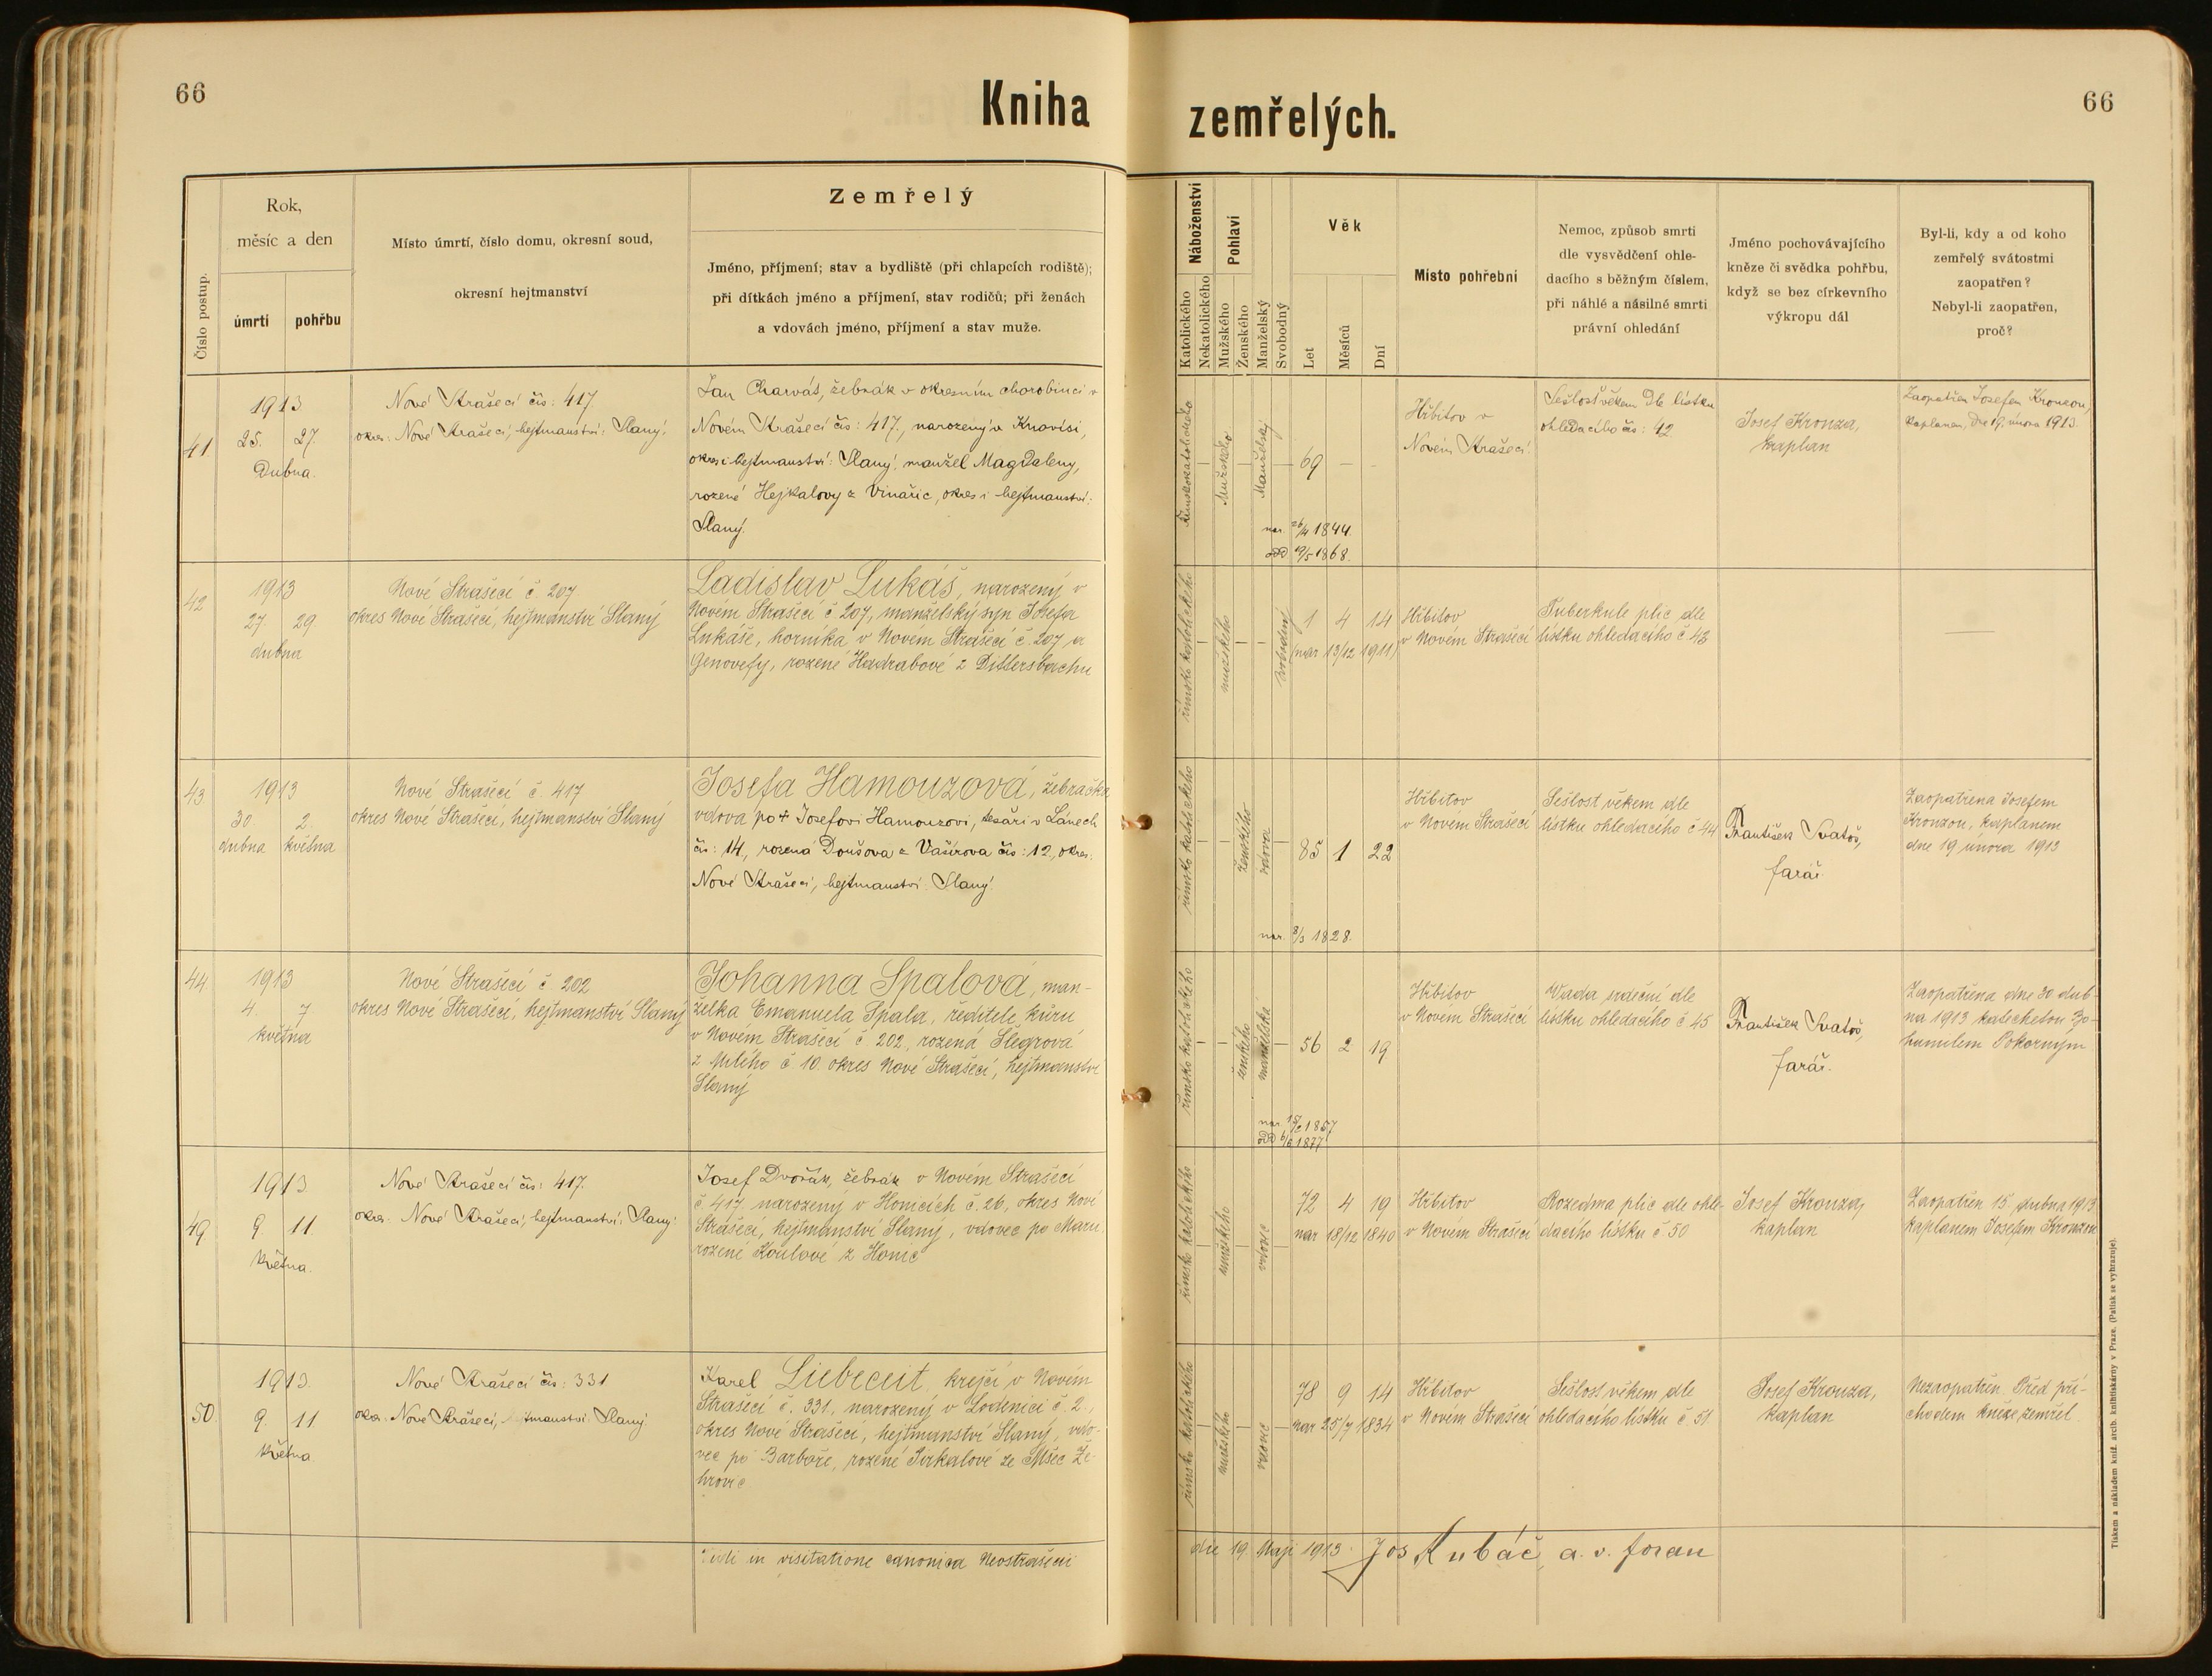 66
Kniha
zemřelých.
66
Číslo postup.
Rok,
měsíc a den
úmrtí
pohřbu
Místo úmrtí, číslo domu, okresní soud,
okresní hejtmanství
Zemřelý
Jméno, příjmení; stav a bydliště (při chlapcích rodiště);
při dítkách jméno a příjmení, stav rodičů; při ženách
a vdovách jméno, příjmení a stav muže.
Náboženství
Katolického
Nekatolického
Pohlaví
Mužského
Ženského
Manželský
Svobodný
Věk
Let
Měsíců
Dní
Místo pohřební
Nemoc, způsob smrti
dle vysvědčení ohle-
dacího s běžným číslem,
při náhlé a násilné smrti
právní ohledání
Jméno pochovávajícího
kněze či svědka pohřbu,
když se bez církevního
výkropu dál
Byl-li, kdy a od koho
zemřelý svátostmi
zaopatřen?
Nebyl-li zaopatřen,
proč?
41
1913
25. 27.
Dubna.
Nové Strašecí čís: 417.
okres: Nové Strašecí, hejtmanství: Slaný.
Jan Charvát, žebrák v okresním chorobinci v
Novém Strašecí čís: 417., narozený v Knovísi,
okres i hejtmanství: Slaný, manžel Magdaleny,
rozené Hejkalovy z Vinařic, okres i hejtmanství:
Slaný.
Římskokatolického
Mužského
Manželský
69 — —
nar. 26/4 1844.
odd 19/5 1868.
Hřbitov v
Novém Strašecí.
Sešlost věkem Dle lístku
ohledacího čís: 42.
Josef Kronza,
kaplan
Zaopatřen Josefem Kronzou,
kaplanem, dne 19. února 1913.
42
1913
27. 29
dubna
Nové Strašecí č. 207
okres Nové Strašecí, hejtmanství Slaný
Ladislav Lukáš, narozený v
Novém Strašecí č. 207, manželský syn Josefa
Lukáše, horníka v Novém Strašecí č. 207 a
Genovefy, rozené Hadrabové z Dittersbachu
římsko katolického
mužského
svobodný
1 4 14
(nar 13/12 1911)
Hřbitov
v Novém Strašecí
Tuberkule plic dle
lístku ohledacího č 43
43
1913
30. 2.
dubna května
Nové Strašecí č. 417
okres Nové Strašecí, hejtmanství Slaný
Josefa Hamouzová, žebračka
vdova po + Josefovi Hamouzovi, tesaři v Lánech
čís: 14., rozená Doušova z Vašírova čís: 12., okres.
Nové Strašecí, hejtmanství: Slaný.
římsko katolického
ženského
vdova
85 1 22
nar. 8/3 1828.
Hřbitov
v Novém Strašecí
Sešlost věkem dle
lístku ohledacího č 44
František Svatoš,
farář.
Zaopatřena Josefem
Kronzou, kaplanem
dne 19 února 1913
44
1913
4. 7
května
Nové Strašecí č 202
okres Nové Strašecí, hejtmanství Slaný
Johanna Spalová, man-
želka Emanuela Spala, ředitele kůru
v Novém Strašecí č. 202, rozená Šlegrová
z Milého č 10. okres Nové Strašecí, hejtmanství
Slaný
římsko katolického
ženského
manželská
56 2 19
nar. 15/2 1857
odd 6/2 1877
Hřbitov
v Novém Strašecí
Wada srdeční dle
lístku ohledacího č 45
František Svatoš,
farář.
Zaopatřena dne 30 dub-
na 1913 katechetou Bo-
humilem Pokorným
49
1913.
9. 11.
května.
Nové Strašecí čís: 417.
okres. Nové Strašecí, hejtmanství: Slaný.
Josef Dvořák, žebrák v Novém Strašecí
č. 417, narozený v Honicích č. 26, okres Nové
Strašecí, hejtmanství Slaný, vdovec po Marii
rozené Koulové z Honic
římsko katolického
mužského
vdovec
72 4 19
nar 18/12 1840
Hřbitov
v Novém Strašecí
Rozedma plic dle ohle-
dacího lístku č 50
Josef Kronza,
kaplan
Zaopatřen 15. dubna 1913
kaplanem Josefem Kronzou
50
1913.
9. 11
května
Nové Strašecí čís: 331
okres. Nové Strašecí, hejtmanství: Slaný.
Karel Liebeceit, krejčí v Novém
Strašecí č. 331, narozený v Lodenici č. 2.,
okres Nové Strašecí, hejtmanství Slaný, vdo-
vec po Barboře, rozené Jirkalové ze Mšec Že-
hrovic
římsko katolického
mužského
vdovec
78 9 14
nar 25/7 1834
Hřbitov
v Novém Strašecí
Sešlost věkem dle
ohledacího lístku č 51.
Josef Kronza,
kaplan
Nezaopatřen. Před pří-
chodem kněze zemřel
Vidi in visitatione canonica Neostrašecii
die 19 Maji 1913. Jos Kubáč, a. v. foran
Tiskem a nákladem kníž. arcib. knihtiskárny v Praze. (Patisk se vyhrazuje).